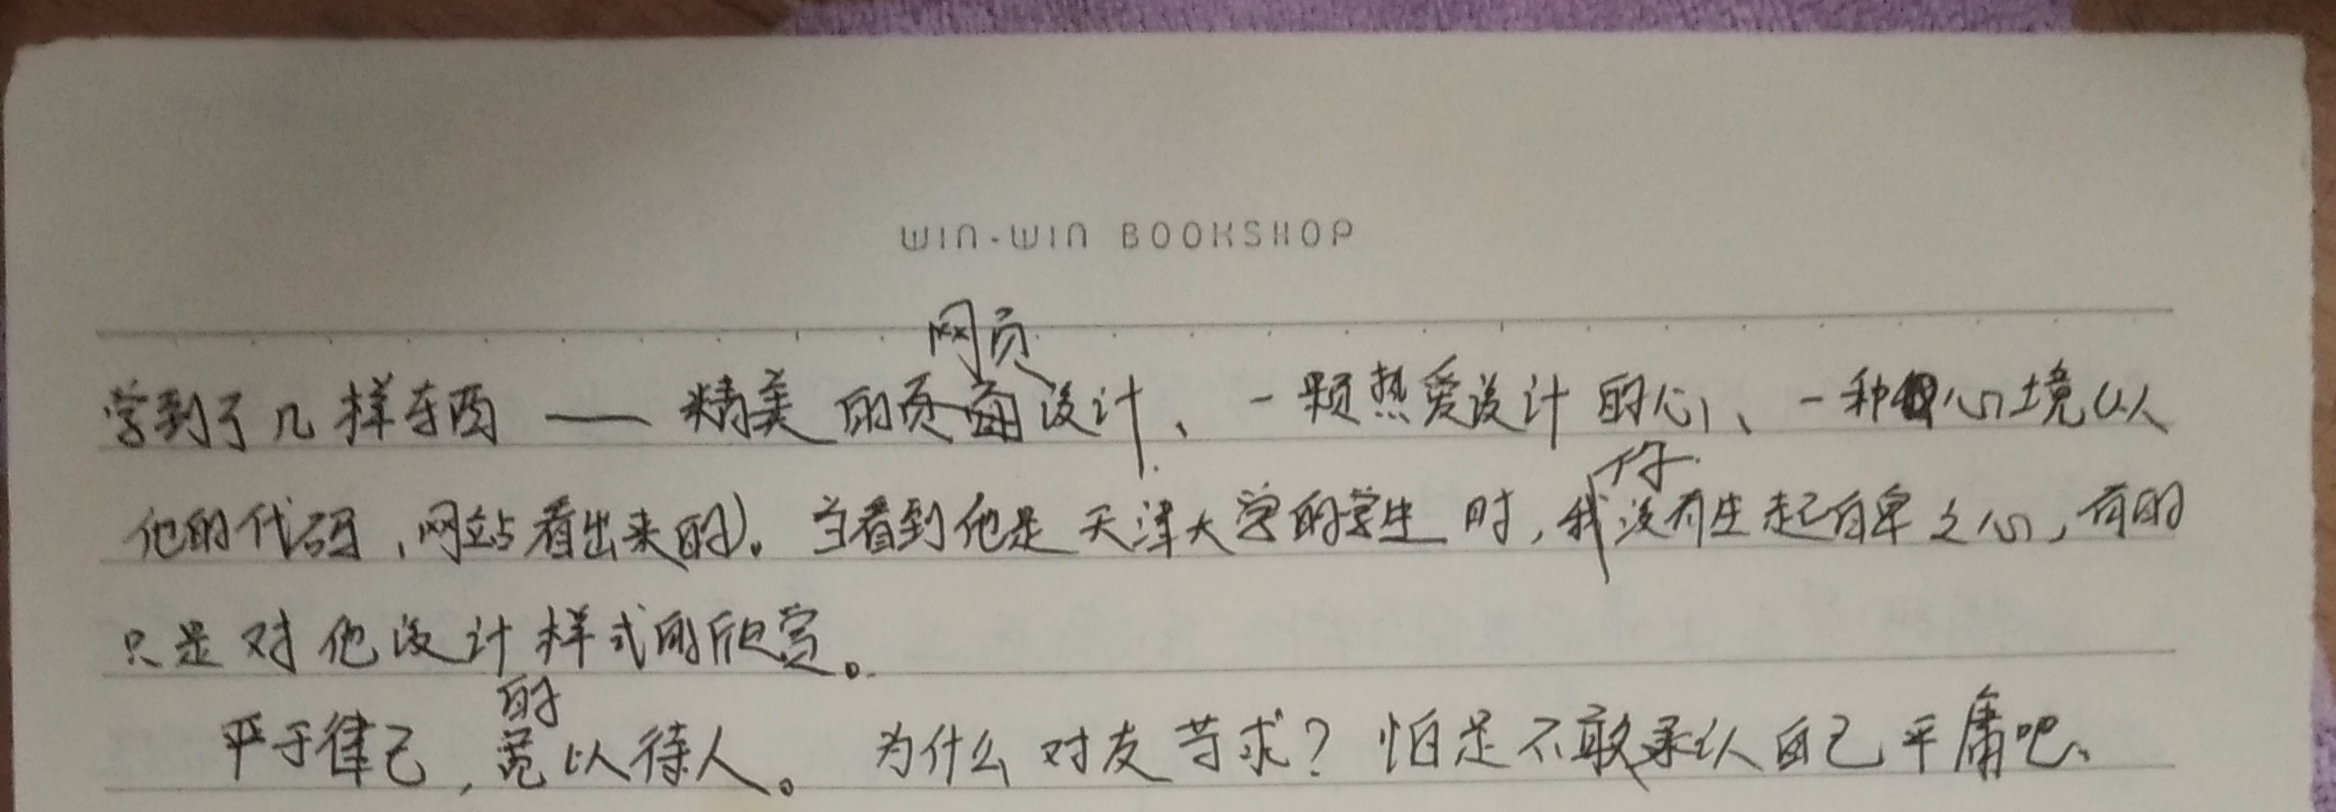 WIN-WIN BOOKSHOP
网页
学到了几样东西——精美的页面设计、一颗热爱设计的心、一种心境(从
他的代码,网站看出来的)。当看到他是天津大学的学生时,我没有生起自卑之心,有的
只是对他设计样式的欣赏。
的
严于律己,宽以待人。为什么对友苛求?怕是不敢承认自己平庸吧、